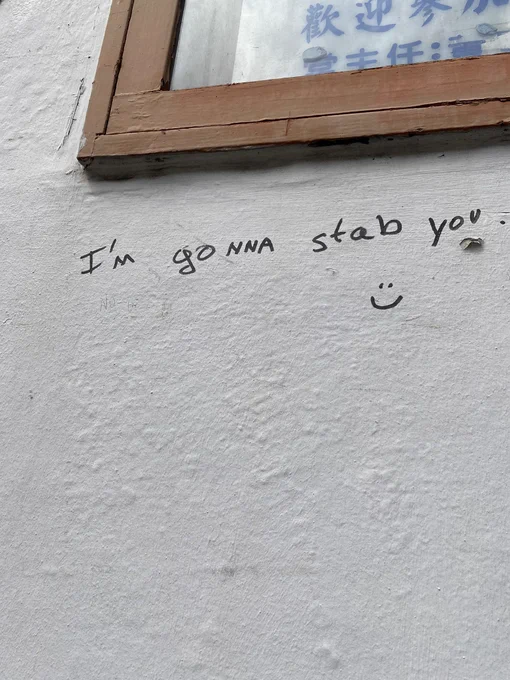 歡迎參加
主任:
I'm goNNA stab you.